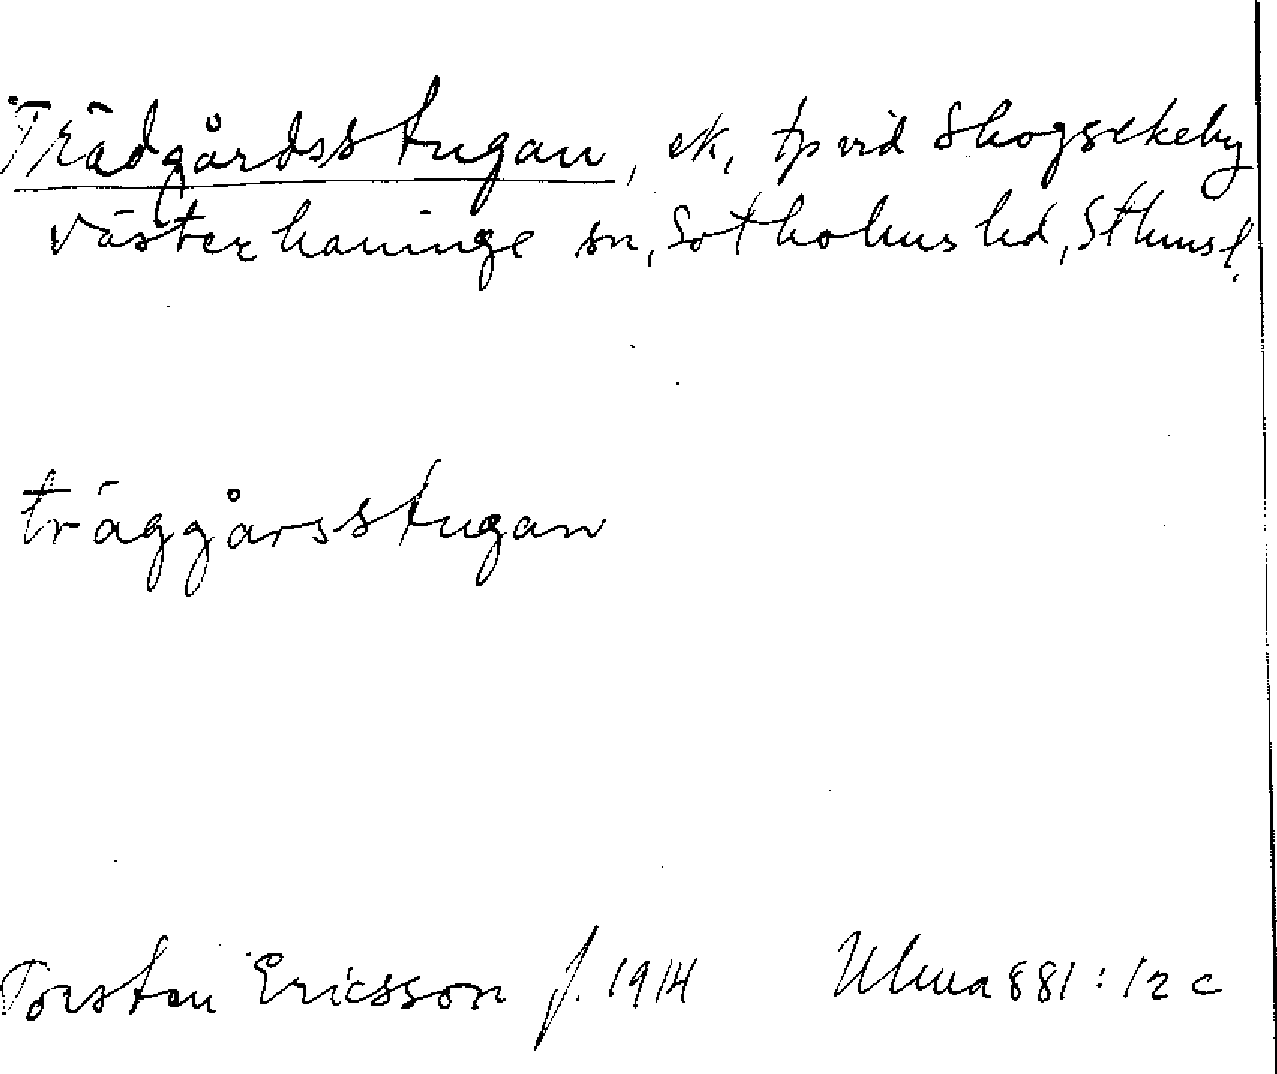 Trädgårdsstugan, ek, tp vid Skogsekeby
Västerhaninge sn, Sotholms hd, Sthmsl.
träggårsstugan
Torsten Ericsson f. 1914 Ulma 881:12 c